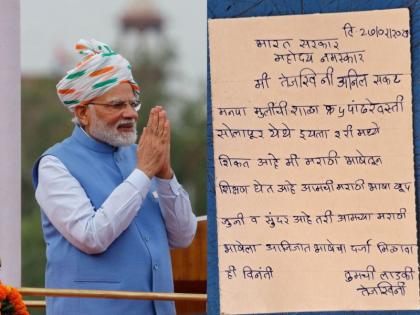 दि 27/02/2022
भारत सरकार
महोदय नमस्कार
मी तेजस्विनी अनिल सकट
मनपा मुलींची शाळा क्र ५ पांढरेवस्ती
सोलापूर येथे इयत्ता २री मध्ये
शिकत आहे मी मराठी भाषेतून
शिक्षण घेत आहे आमची मराठी भाषा खूप
जुनी व सुंदर आहे तरी आमच्या मराठी
भाषेला अभिजात भाषेचा दर्जा मिळावा
ही विनंती
तुमची लाडकी
तेजस्विनी